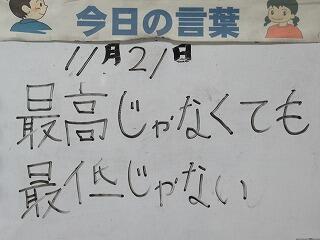 今日の言葉
11月21日
最高じゃなくても
最低じゃない